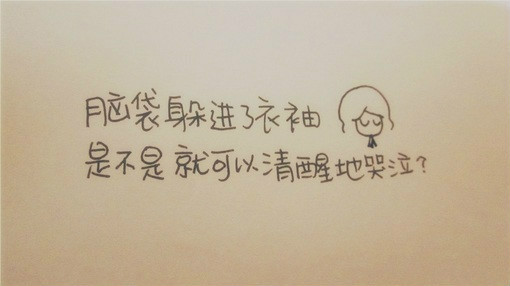 脑袋躲进了衣袖
是不是就可以清醒地哭泣?